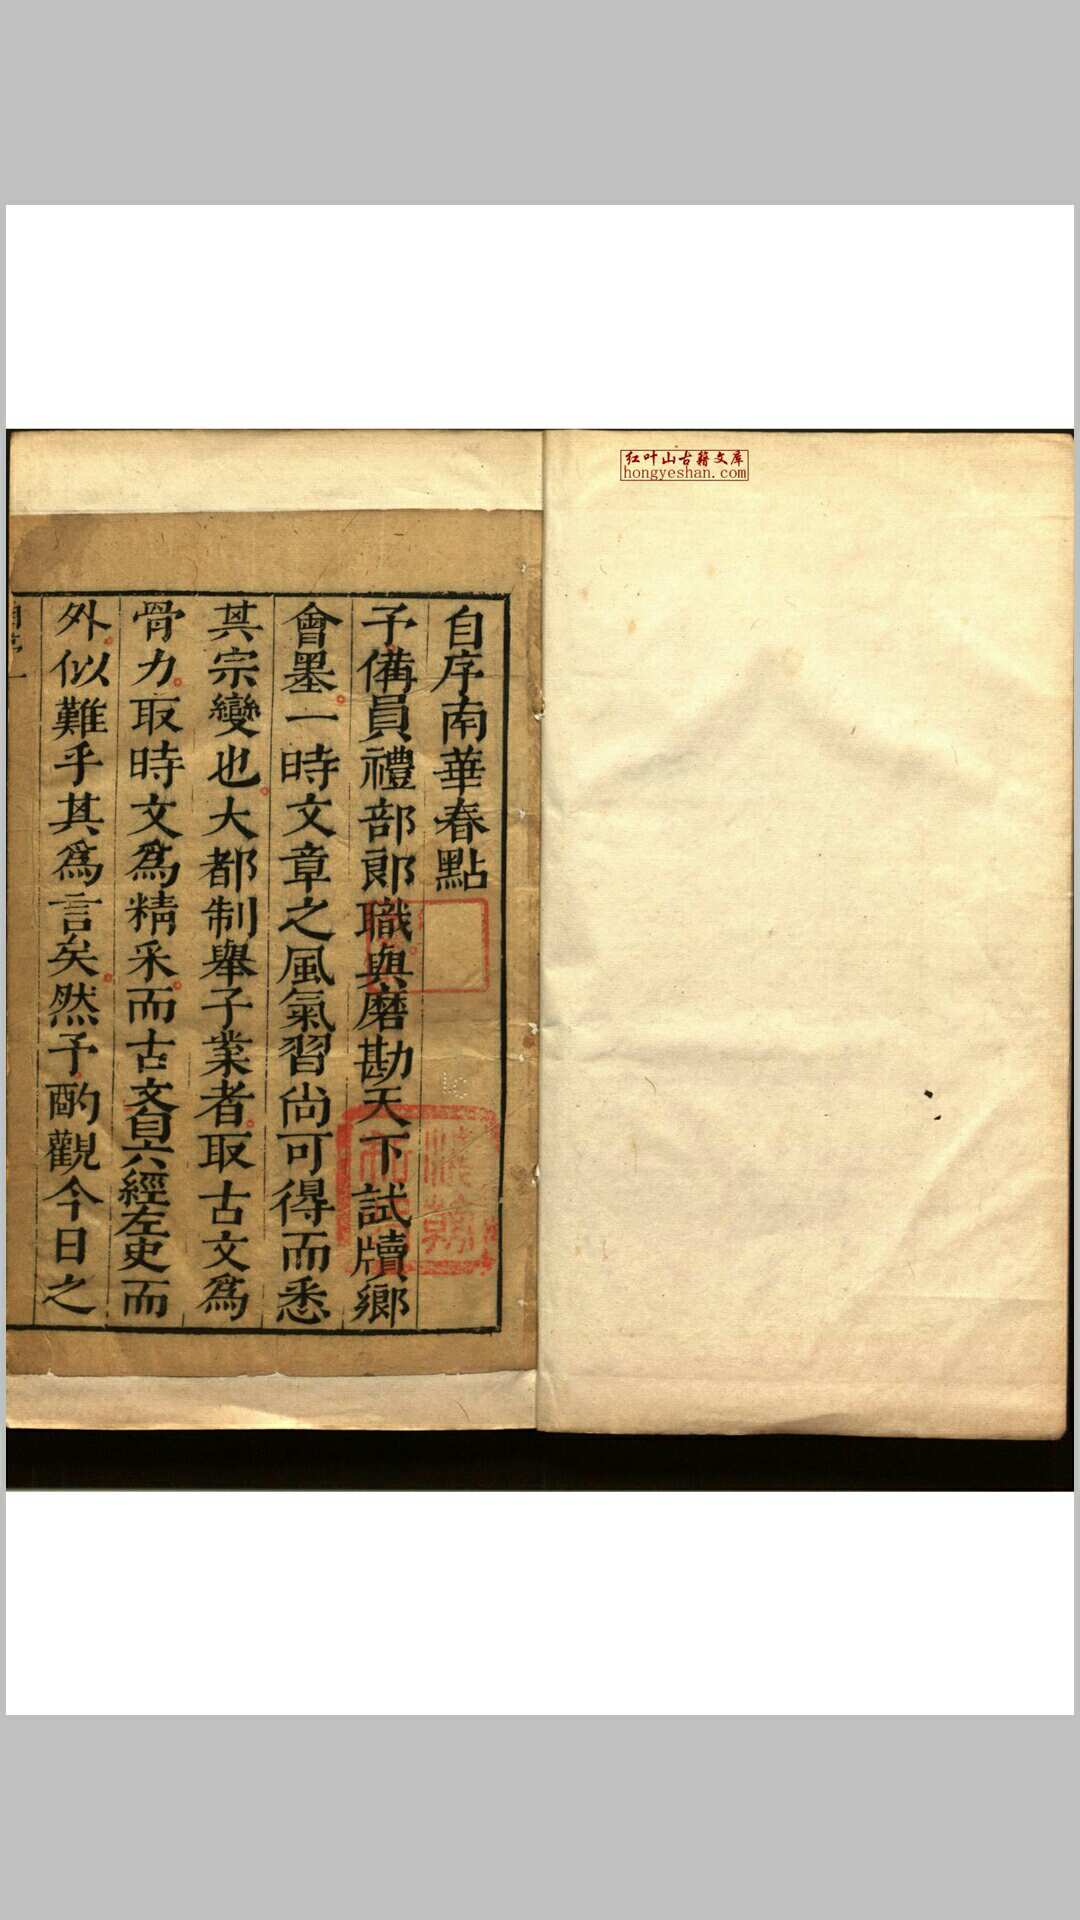 红叶山古籍文库
hongyeshan.com
自序南華春點
予備員禮部郎職與磨勘天下試牘鄉
會墨一時文章之風氣習尚可得而悉
其宗變也大都制舉子業者取古文為
骨力取時文為精采而古文自六經左史而
外似難乎其為言矣然予酌觀今日之